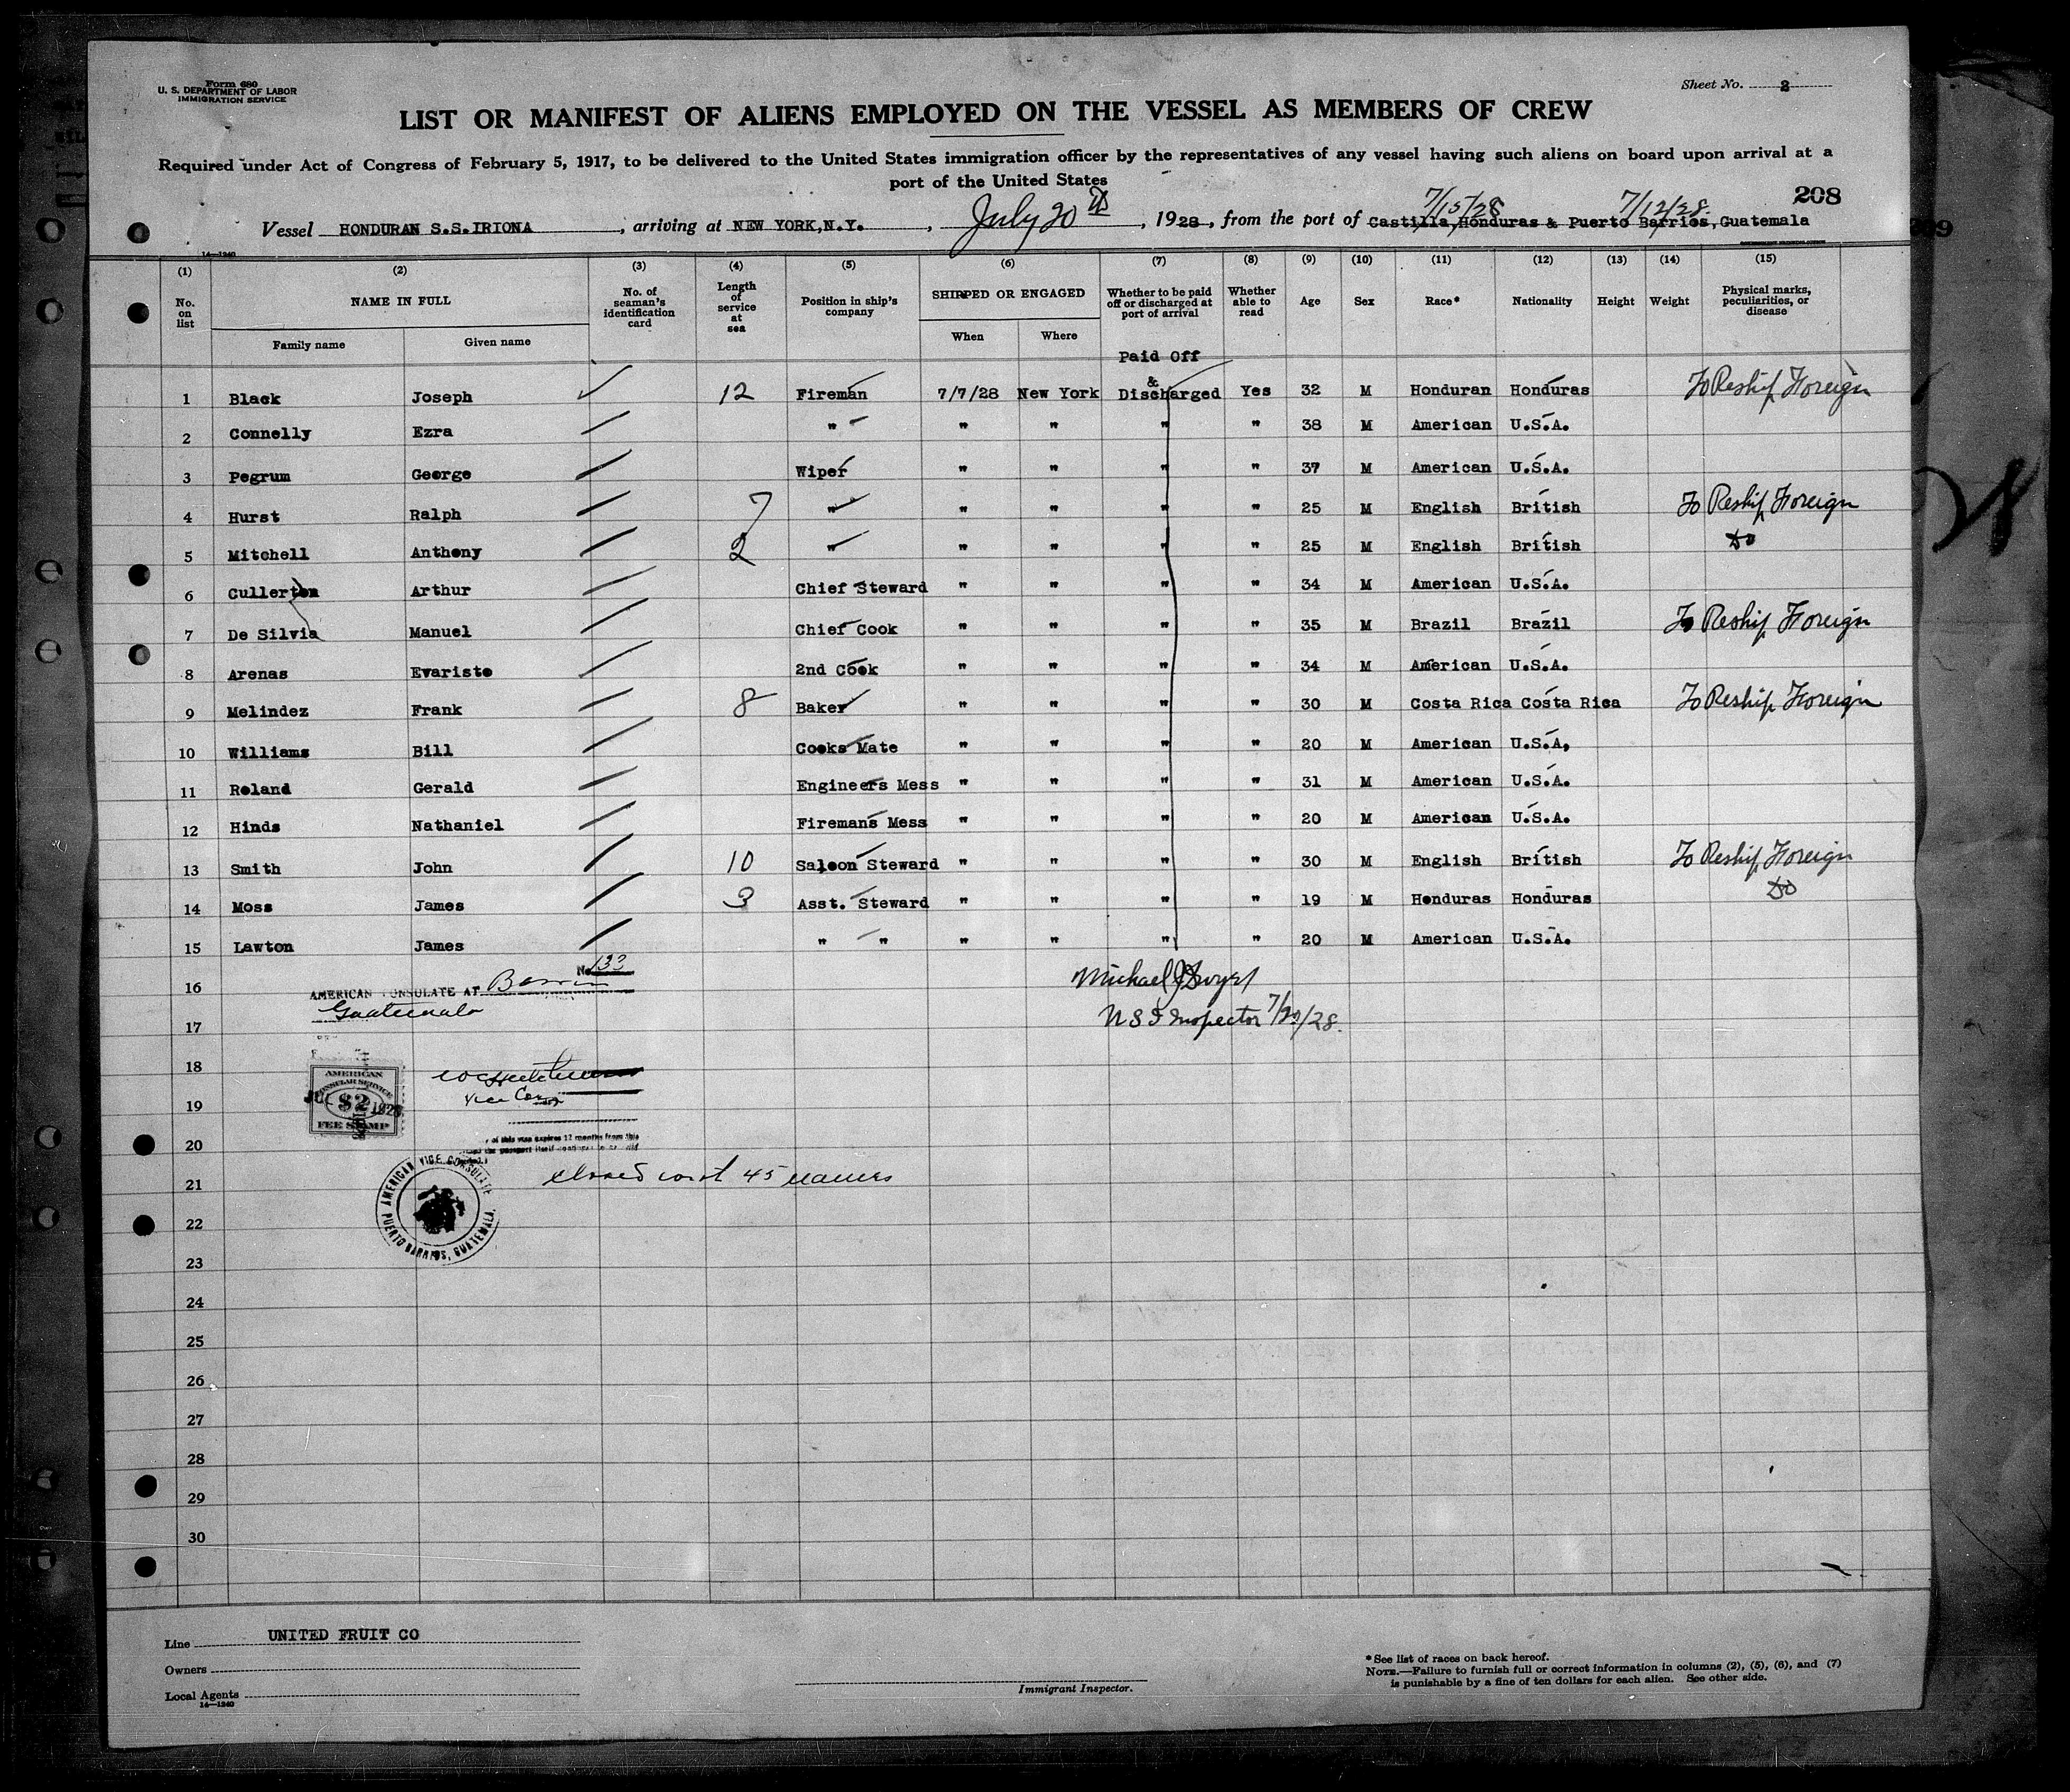 Form 680
U. S. DEPARTMENT OF LABOR
IMMIGRATION SERVICE
Sheet No. 2
LIST OR MANIFEST OF ALIENS EMPLOYED ON THE VESSEL AS MEMBERS OF CREW
Required under Act of Congress of February 5, 1917, to be delivered to the United States immigration officer by the representatives of any vessel having such aliens on board upon arrival at a
port of the United States
208
7/15/28 7/12/28.
Vessel HONDURAN S.S.IRIONA, arriving at NEW YORK,N.Y., July 20th, 1928, from the port of Castilla,Honduras & Puerto Barrios,Guatemala
14—1240
(1) (2) (3) (4) (5) (6) (7) (8) (9) (10) (11) (12) (13) (14) (15)
No. on list NAME IN FULL No. of seaman's identification card Length of service at sea Position in ship's company SHIPPED OR ENGAGED Whether to be paid off or discharged at port of arrival Whether able to read Age Sex Race* Nationality Height Weight Physical marks, peculiarities, or disease
Family name Given name When Where
Paid Off
&
1 Black Joseph 12 Fireman 7/7/28 New York Discharged Yes 32 M Honduran Honduras To Reship Foreign
2 Connelly Ezra " " " " " 38 M American U.S.A.
3 Pegrum George Wiper " " " " 37 M American U.S.A.
4 Hurst Ralph 7 " " " " " 25 M English British To Reship Foreign
5 Mitchell Anthony 2 " " " " " 25 M English British do
6 Cullerton Arthur Chief Steward " " " " 34 M American U.S.A.
7 De Silvia Manuel Chief Cook " " " " 35 M Brazil Brazil To Reship Foreign
8 Arenas Evaristo 2nd Cook " " " " 34 M American U.S.A.
9 Melindez Frank 8 Baker " " " " 30 M Costa Rica Costa Rica To Reship Foreign
10 Williams Bill Cooks Mate " " " " 20 M American U.S.A,
11 Roland Gerald Engineers Mess " " " " 31 M American U.S.A.
12 Hinds Nathaniel Firemans Mess " " " " 20 M American U.S.A.
13 Smith John 10 Saloon Steward " " " " 30 M English British To Reship Foreign
14 Moss James 3 Asst. Steward " " " " 19 M Honduras Honduras do
15 Lawton James " " " " " " 20 M American U.S.A.
No. 133
16 AMERICAN CONSULATE AT Michael J Dwyer
Guatemala
17 U S I Inspector 7/20/28.
18
AMERICAN
CONSULAR SERVICE
$2
JUL 1928
FEE STAMP
Vice Consul
19
20
of this visa expires 12 months from this
21 closed with 45 names
AMERICAN VICE CONSULATE
PUERTO BARRIOS, GUATEMALA.
22
23
24
25
26
27
28
29
30
Line UNITED FRUIT CO
Owners
Local Agents
14—1240
Immigrant Inspector.
* See list of races on back hereof.
NOTE.—Failure to furnish full or correct information in columns (2), (5), (6), and (7)
is punishable by a fine of ten dollars for each alien. See other side.